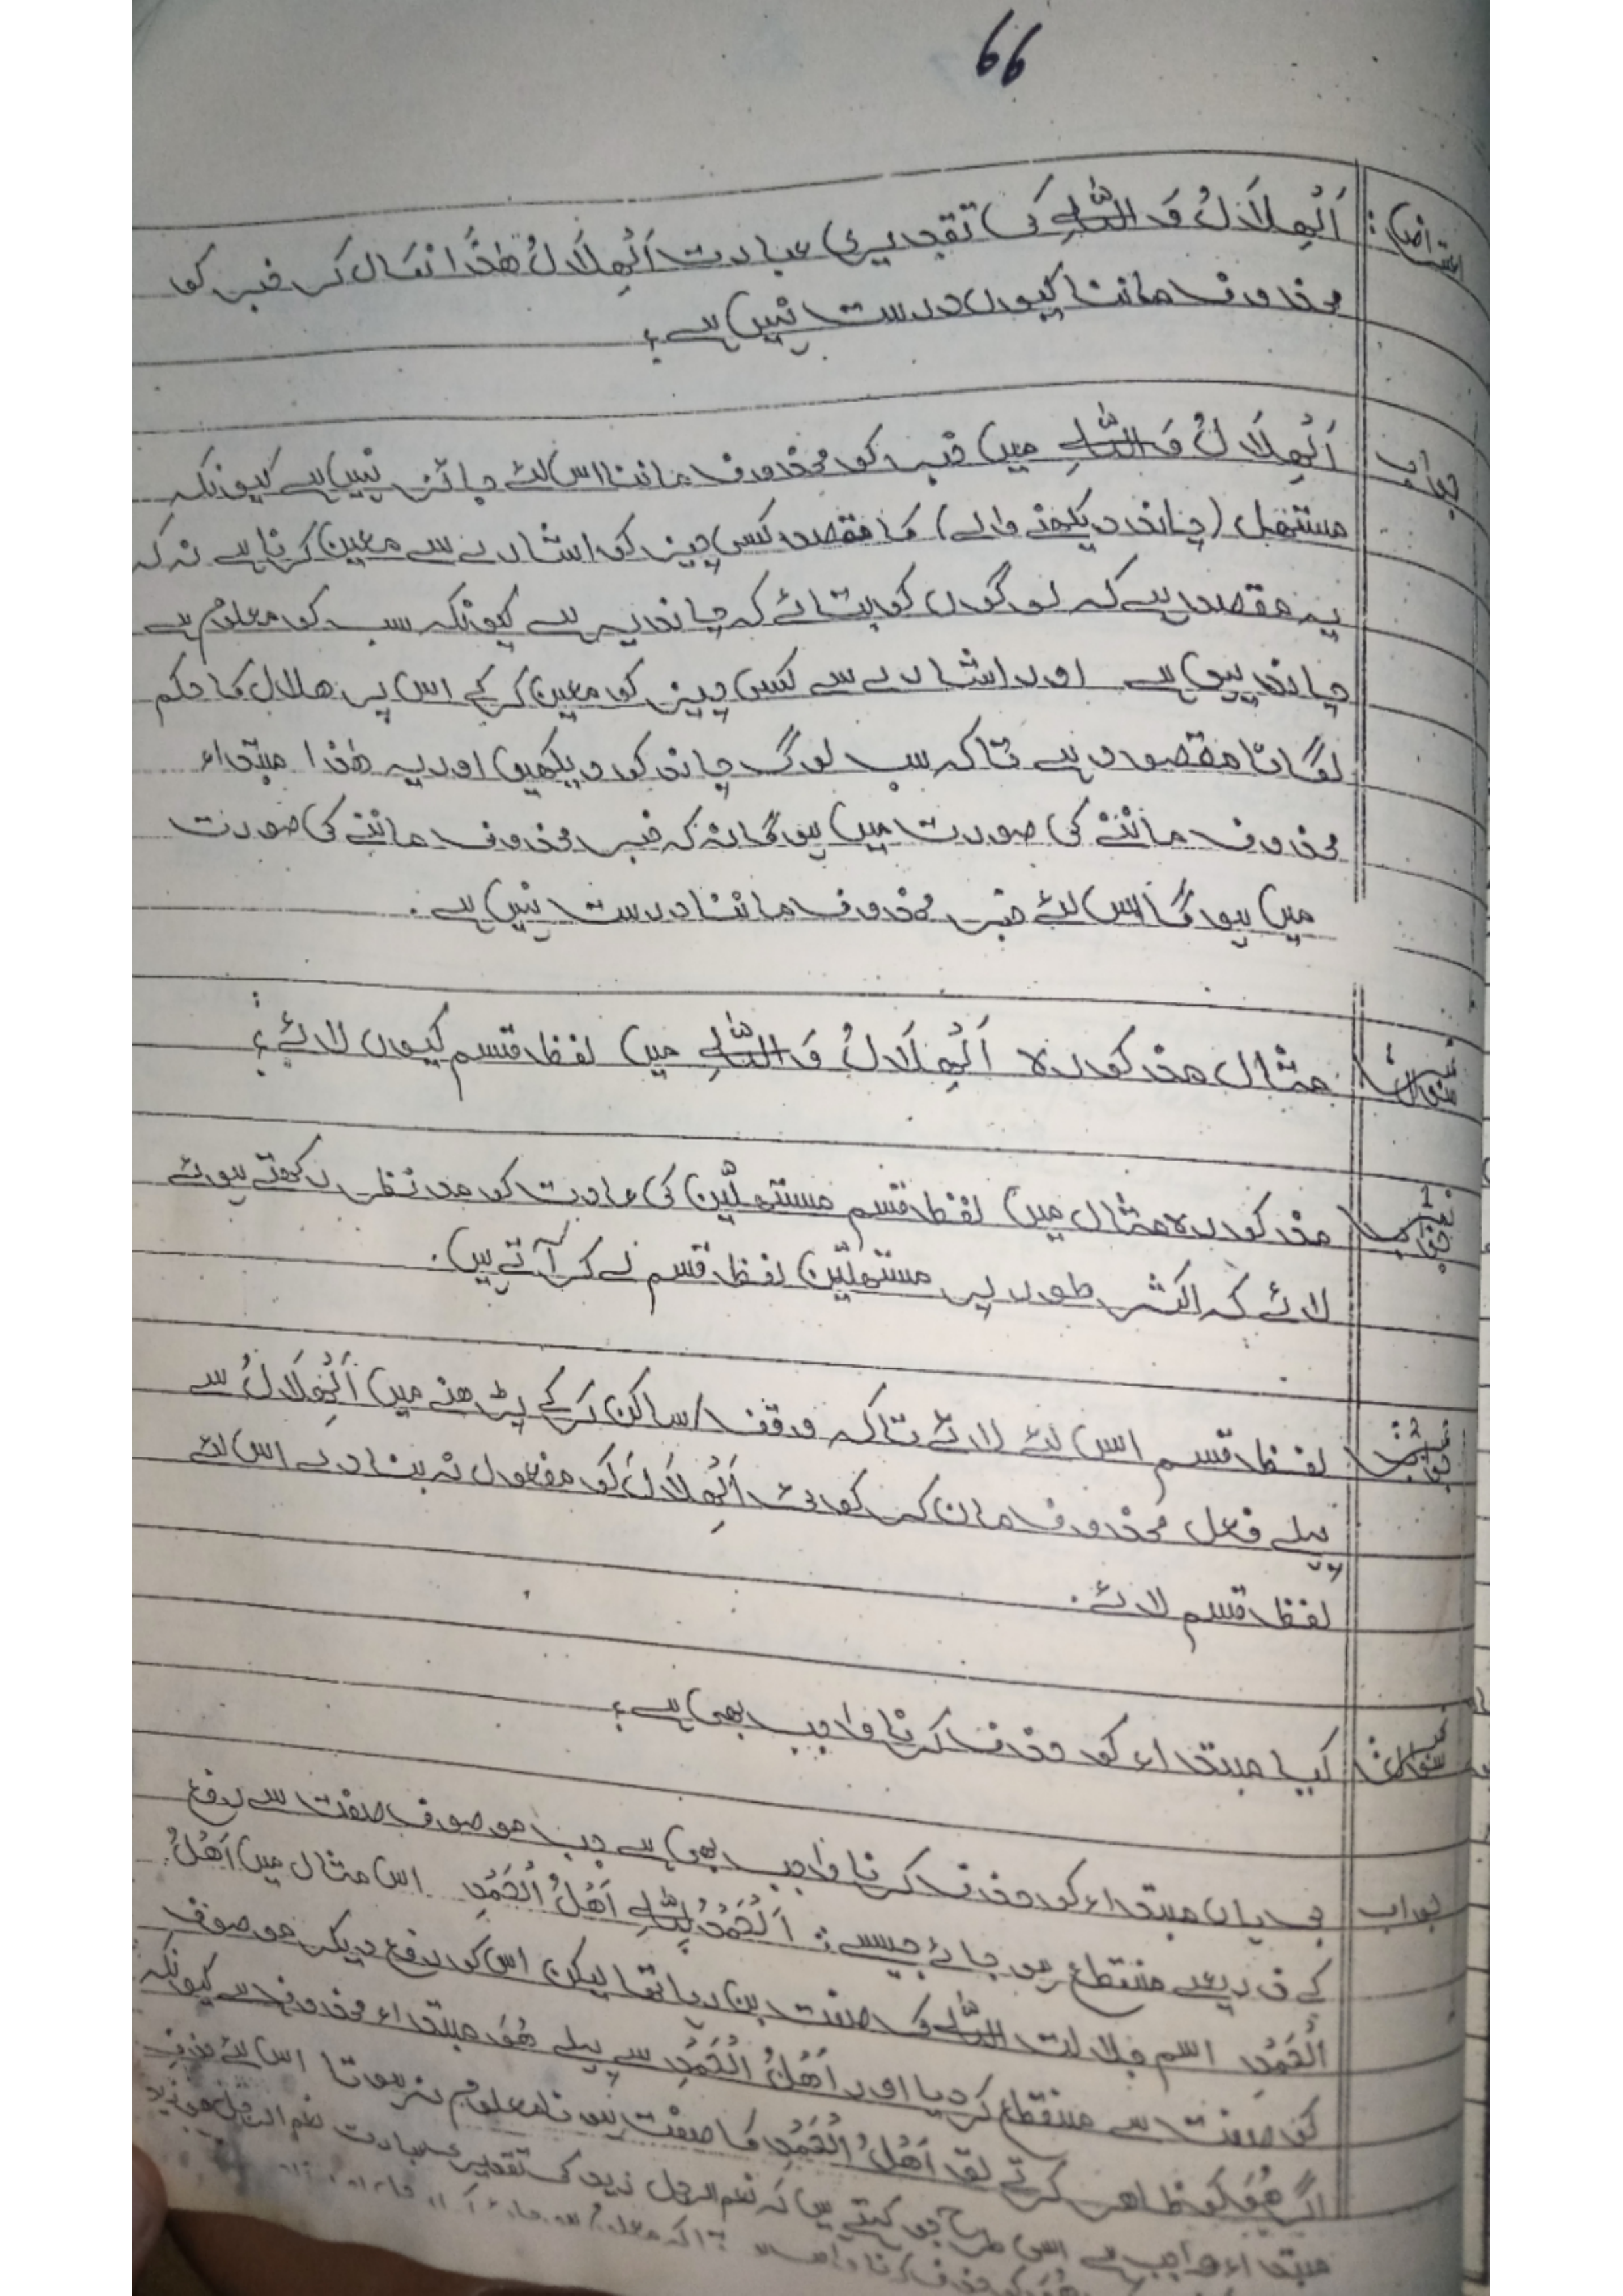 66
اعتراض: اَلْھِلَالُ وَاللّٰہِ کی تقدیری عبادت اَلْھِلَالُ ھٰذَا نکال کر خبر کو
محذوف ماننا کیوں درست نہیں ہے؟
جواب اَلْھِلَالُ وَاللّٰہِ میں خبر کو محذوف ماننا اس لئے جائز نہیں ہے کیونکہ
مستھل (چاند دیکھنے والے) کا مقصد کسی چیز کو اشارے سے معین کرنا ہے نہ کہ
یہ مقصد ہے کہ لوگوں کو بتائے کہ چاند یہ ہے کیونکہ سب کو معلوم ہے
چاند یہی ہے اور اشارے سے کسی چیز کو معین کر کے اس پر ھلال کا حکم
لگانا مقصود ہے تاکہ سب لوگ چاند کو دیکھیں اور یہ ھٰذا مبتداء
محذوف ماننے کی صورت میں ہو گا نہ کہ خبر محذوف ماننے کی صورت
میں ہو گا اس لئے خبر محذوف ماننا درست نہیں ہے۔
سوال مثال مذکورہ اَلْھِلَالُ وَاللّٰہِ میں لفظ قسم کیوں لائے؟
جواب 1 مذکورہ مثال میں لفظ قسم مستھلّین کی عادت کو مدنظر رکھتے ہوئے
لائے کہ اکثر طور پر مستھلّین لفظ قسم لے کر آتے ہیں۔
جواب لفظ قسم اس لئے لائے تاکہ وقف / ساکن کر کے پڑھنے میں اَلْھِلَالُ سے
پہلے فعل محذوف مان کر کوئی اَلْھِلَالَ کو مفعول نہ بنا دے اس لئے
لفظ قسم لائے۔
سوال کیا مبتداء کو حذف کرنا واجب بھی ہے؟
جواب جی ہاں مبتداء کو حذف کرنا واجب بھی ہے جب موصوف صفت سے رفع
کے ذریعے منقطع ہو جائے جیسے: اَلْحَمْدُ لِلّٰہِ اَھْلُ الْحَمْدِ اس مثال میں اَھْلُ
الْحَمْدِ اسم جلالت اللّٰہ کی صفت بن رہا تھا لیکن اس کو رفع دیکر موصوف
کو صفت سے منقطع کر دیا اور اَھْلُ الْحَمْدِ سے پہلے ھُوَ مبتداء محذوف ہے کیونکہ
اگر ھُوَ کو ظاہر کرتے تو اَھْلُ الْحَمْدِ کا صفت ہونا معلوم نہ ہوتا اس لئے حذفِ
مبتداء واجب ہے اسی طرح جو کہتے ہیں کہ نعم الرجل زید کی تقدیری عبادت نعم الرجل ھو زید
ھُوَ کو حذف کرنا